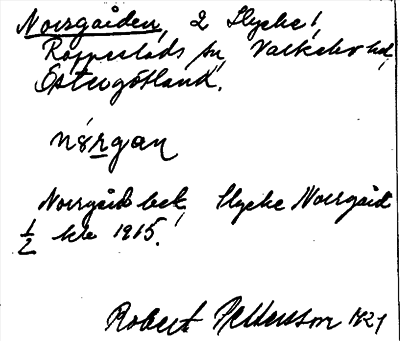 Norrgården, 2 Stycke,
Rappestads sn, Valkebo hd,
Östergötland.
nørgan
Norrgård bek, Stycke Norrgård
1/2 kr 1915.
Robert Pettersson 1921